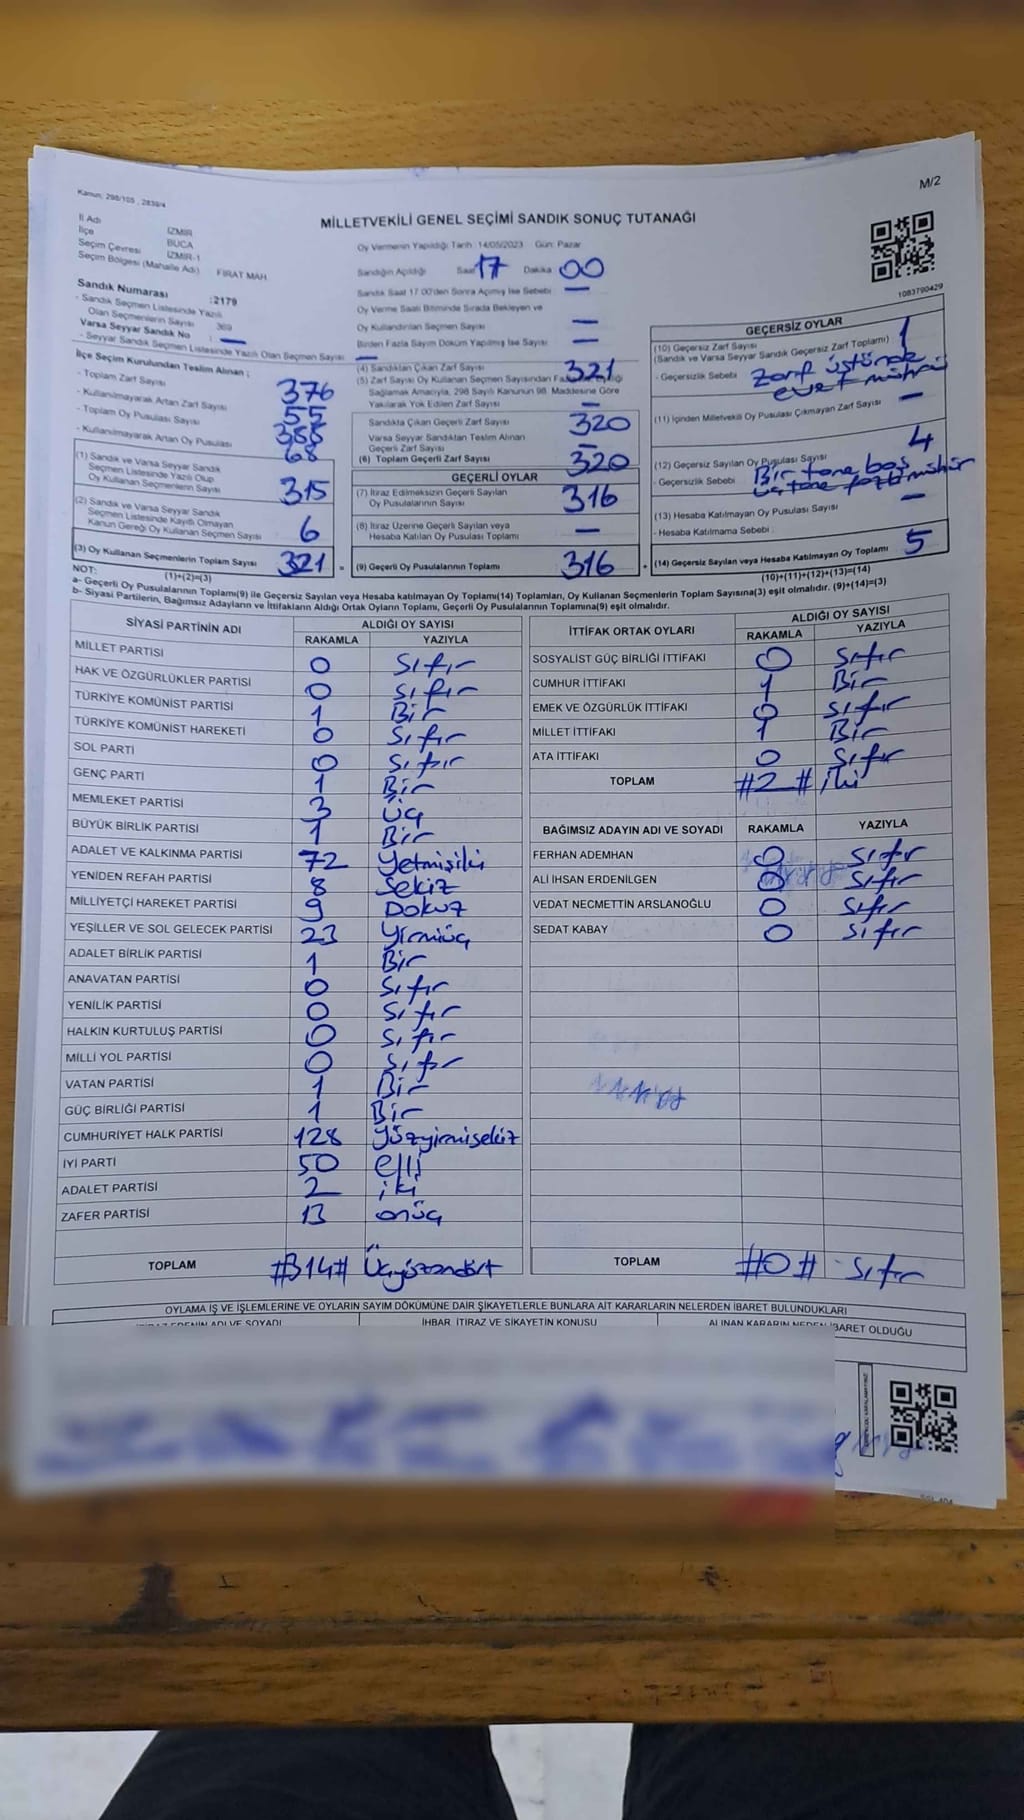 Kanun: 298/105 , 2839/4
M/2
MİLLETVEKİLİ GENEL SEÇİMİ SANDIK SONUÇ TUTANAĞI
İl Adı İZMİR
İlçe BUCA
Seçim Çevresi İZMİR-1
Seçim Bölgesi (Mahalle Adı) FIRAT MAH.
Sandık Numarası :2179
- Sandık Seçmen Listesinde Yazılı
Olan Seçmenlerin Sayısı 369
Varsa Seyyar Sandık No : —
- Seyyar Sandık Seçmen Listesinde Yazılı Olan Seçmen Sayısı : —
İlçe Seçim Kurulundan Teslim Alınan ;
- Toplam Zarf Sayısı 376
- Kullanılmayarak Artan Zarf Sayısı 55
- Toplam Oy Pusulası Sayısı
- Kullanılmayarak Artan Oy Pusulası 68
(1) Sandık ve Varsa Seyyar Sandık
Seçmen Listesinde Yazılı Olup
Oy Kullanan Seçmenlerin Sayısı 315
(2) Sandık ve Varsa Seyyar Sandık
Seçmen Listesinde Kayıtlı Olmayan
Kanun Gereği Oy Kullanan Seçmen Sayısı 6
(3) Oy Kullanan Seçmenlerin Toplam Sayısı 321
(1)+(2)=(3)
Oy Vermenin Yapıldığı Tarih : 14/05/2023 Gün: Pazar
Sandığın Açıldığı Saat 17 Dakika 00
Sandık Saat 17.00'den Sonra Açılmış İse Sebebi : —
Oy Verme Saati Bitiminde Sırada Bekleyen ve
Oy Kullandırılan Seçmen Sayısı —
Birden Fazla Sayım Döküm Yapılmış İse Sayısı —
(4) Sandıktan Çıkan Zarf Sayısı 321
(5) Zarf Sayısı Oy Kullanan Seçmen Sayısından
Sağlamak Amacıyla, 298 Sayılı Kanunun 98. Maddesine Göre
Yakılarak Yok Edilen Zarf Sayısı —
Sandıkta Çıkan Geçerli Zarf Sayısı 320
Varsa Seyyar Sandıktan Teslim Alınan
Geçerli Zarf Sayısı —
(6) Toplam Geçerli Zarf Sayısı 320
GEÇERLİ OYLAR
(7) İtiraz Edilmeksizin Geçerli Sayılan
Oy Pusulalarının Sayısı 316
(8) İtiraz Üzerine Geçerli Sayılan veya
Hesaba Katılan Oy Pusulası Toplamı —
(9) Geçerli Oy Pusulalarının Toplamı 316
1083790429
GEÇERSİZ OYLAR
(10) Geçersiz Zarf Sayısı 1
(Sandık ve Varsa Seyyar Sandık Geçersiz Zarf Toplamı)
- Geçersizlik Sebebi Zarf üstünde
evet mührü
(11) İçinden Milletvekili Oy Pusulası Çıkmayan Zarf Sayısı —
(12) Geçersiz Sayılan Oy Pusulası Sayısı 4
- Geçersizlik Sebebi Bir tane boş
üç tane fazla mühür
(13) Hesaba Katılmayan Oy Pusulası Sayısı —
- Hesaba Katılmama Sebebi :
(14) Geçersiz Sayılan veya Hesaba Katılmayan Oy Toplamı 5
(10)+(11)+(12)+(13)=(14)
NOT:
a- Geçerli Oy Pusulalarının Toplamı(9) ile Geçersiz Sayılan veya Hesaba katılmayan Oy Toplamı(14) Toplamları, Oy Kullanan Seçmenlerin Toplam Sayısına(3) eşit olmalıdır. (9)+(14)=(3)
b- Siyasi Partilerin, Bağımsız Adayların ve İttifakların Aldığı Ortak Oyların Toplamı, Geçerli Oy Pusulalarının Toplamına(9) eşit olmalıdır.
SİYASİ PARTİNİN ADI ALDIĞI OY SAYISI
RAKAMLA YAZIYLA
MİLLET PARTİSİ 0 Sıfır
HAK VE ÖZGÜRLÜKLER PARTİSİ 0 Sıfır
TÜRKİYE KOMÜNİST PARTİSİ 1 Bir
TÜRKİYE KOMÜNİST HAREKETİ 0 Sıfır
SOL PARTİ 0 Sıfır
GENÇ PARTİ 1 Bir
MEMLEKET PARTİSİ 3 üç
BÜYÜK BİRLİK PARTİSİ 1 Bir
ADALET VE KALKINMA PARTİSİ 72 Yetmişiki
YENİDEN REFAH PARTİSİ 8 Sekiz
MİLLİYETÇİ HAREKET PARTİSİ 9 Dokuz
YEŞİLLER VE SOL GELECEK PARTİSİ 23 Yirmiüç
ADALET BİRLİK PARTİSİ 1 Bir
ANAVATAN PARTİSİ 0 Sıfır
YENİLİK PARTİSİ 0 Sıfır
HALKIN KURTULUŞ PARTİSİ 0 Sıfır
MİLLİ YOL PARTİSİ 0 Sıfır
VATAN PARTİSİ 1 Bir
GÜÇ BİRLİĞİ PARTİSİ 1 Bir
CUMHURİYET HALK PARTİSİ 128 Yüzyirmisekiz
İYİ PARTİ 50 elli
ADALET PARTİSİ 2 iki
ZAFER PARTİSİ 13 onüç
TOPLAM #314# Üçyüzondört
İTTİFAK ORTAK OYLARI ALDIĞI OY SAYISI
RAKAMLA YAZIYLA
SOSYALİST GÜÇ BİRLİĞİ İTTİFAKI 0 Sıfır
CUMHUR İTTİFAKI 1 Bir
EMEK VE ÖZGÜRLÜK İTTİFAKI 0 Sıfır
MİLLET İTTİFAKI 1 Bir
ATA İTTİFAKI 0 Sıfır
TOPLAM #2# iki
BAĞIMSIZ ADAYIN ADI VE SOYADI RAKAMLA YAZIYLA
FERHAN ADEMHAN 0 Sıfır
ALİ İHSAN ERDENİLGEN 0 Sıfır
VEDAT NECMETTİN ARSLANOĞLU 0 Sıfır
SEDAT KABAY 0 Sıfır
TOPLAM #0# Sıfır
OYLAMA İŞ VE İŞLEMLERİNE VE OYLARIN SAYIM DÖKÜMÜNE DAİR ŞİKAYETLERLE BUNLARA AİT KARARLARIN NELERDEN İBARET BULUNDUKLARI
İHBAR, İTİRAZ VE ŞİKAYETİN KONUSU
ALINAN KARARIN NEDEN İBARET OLDUĞU